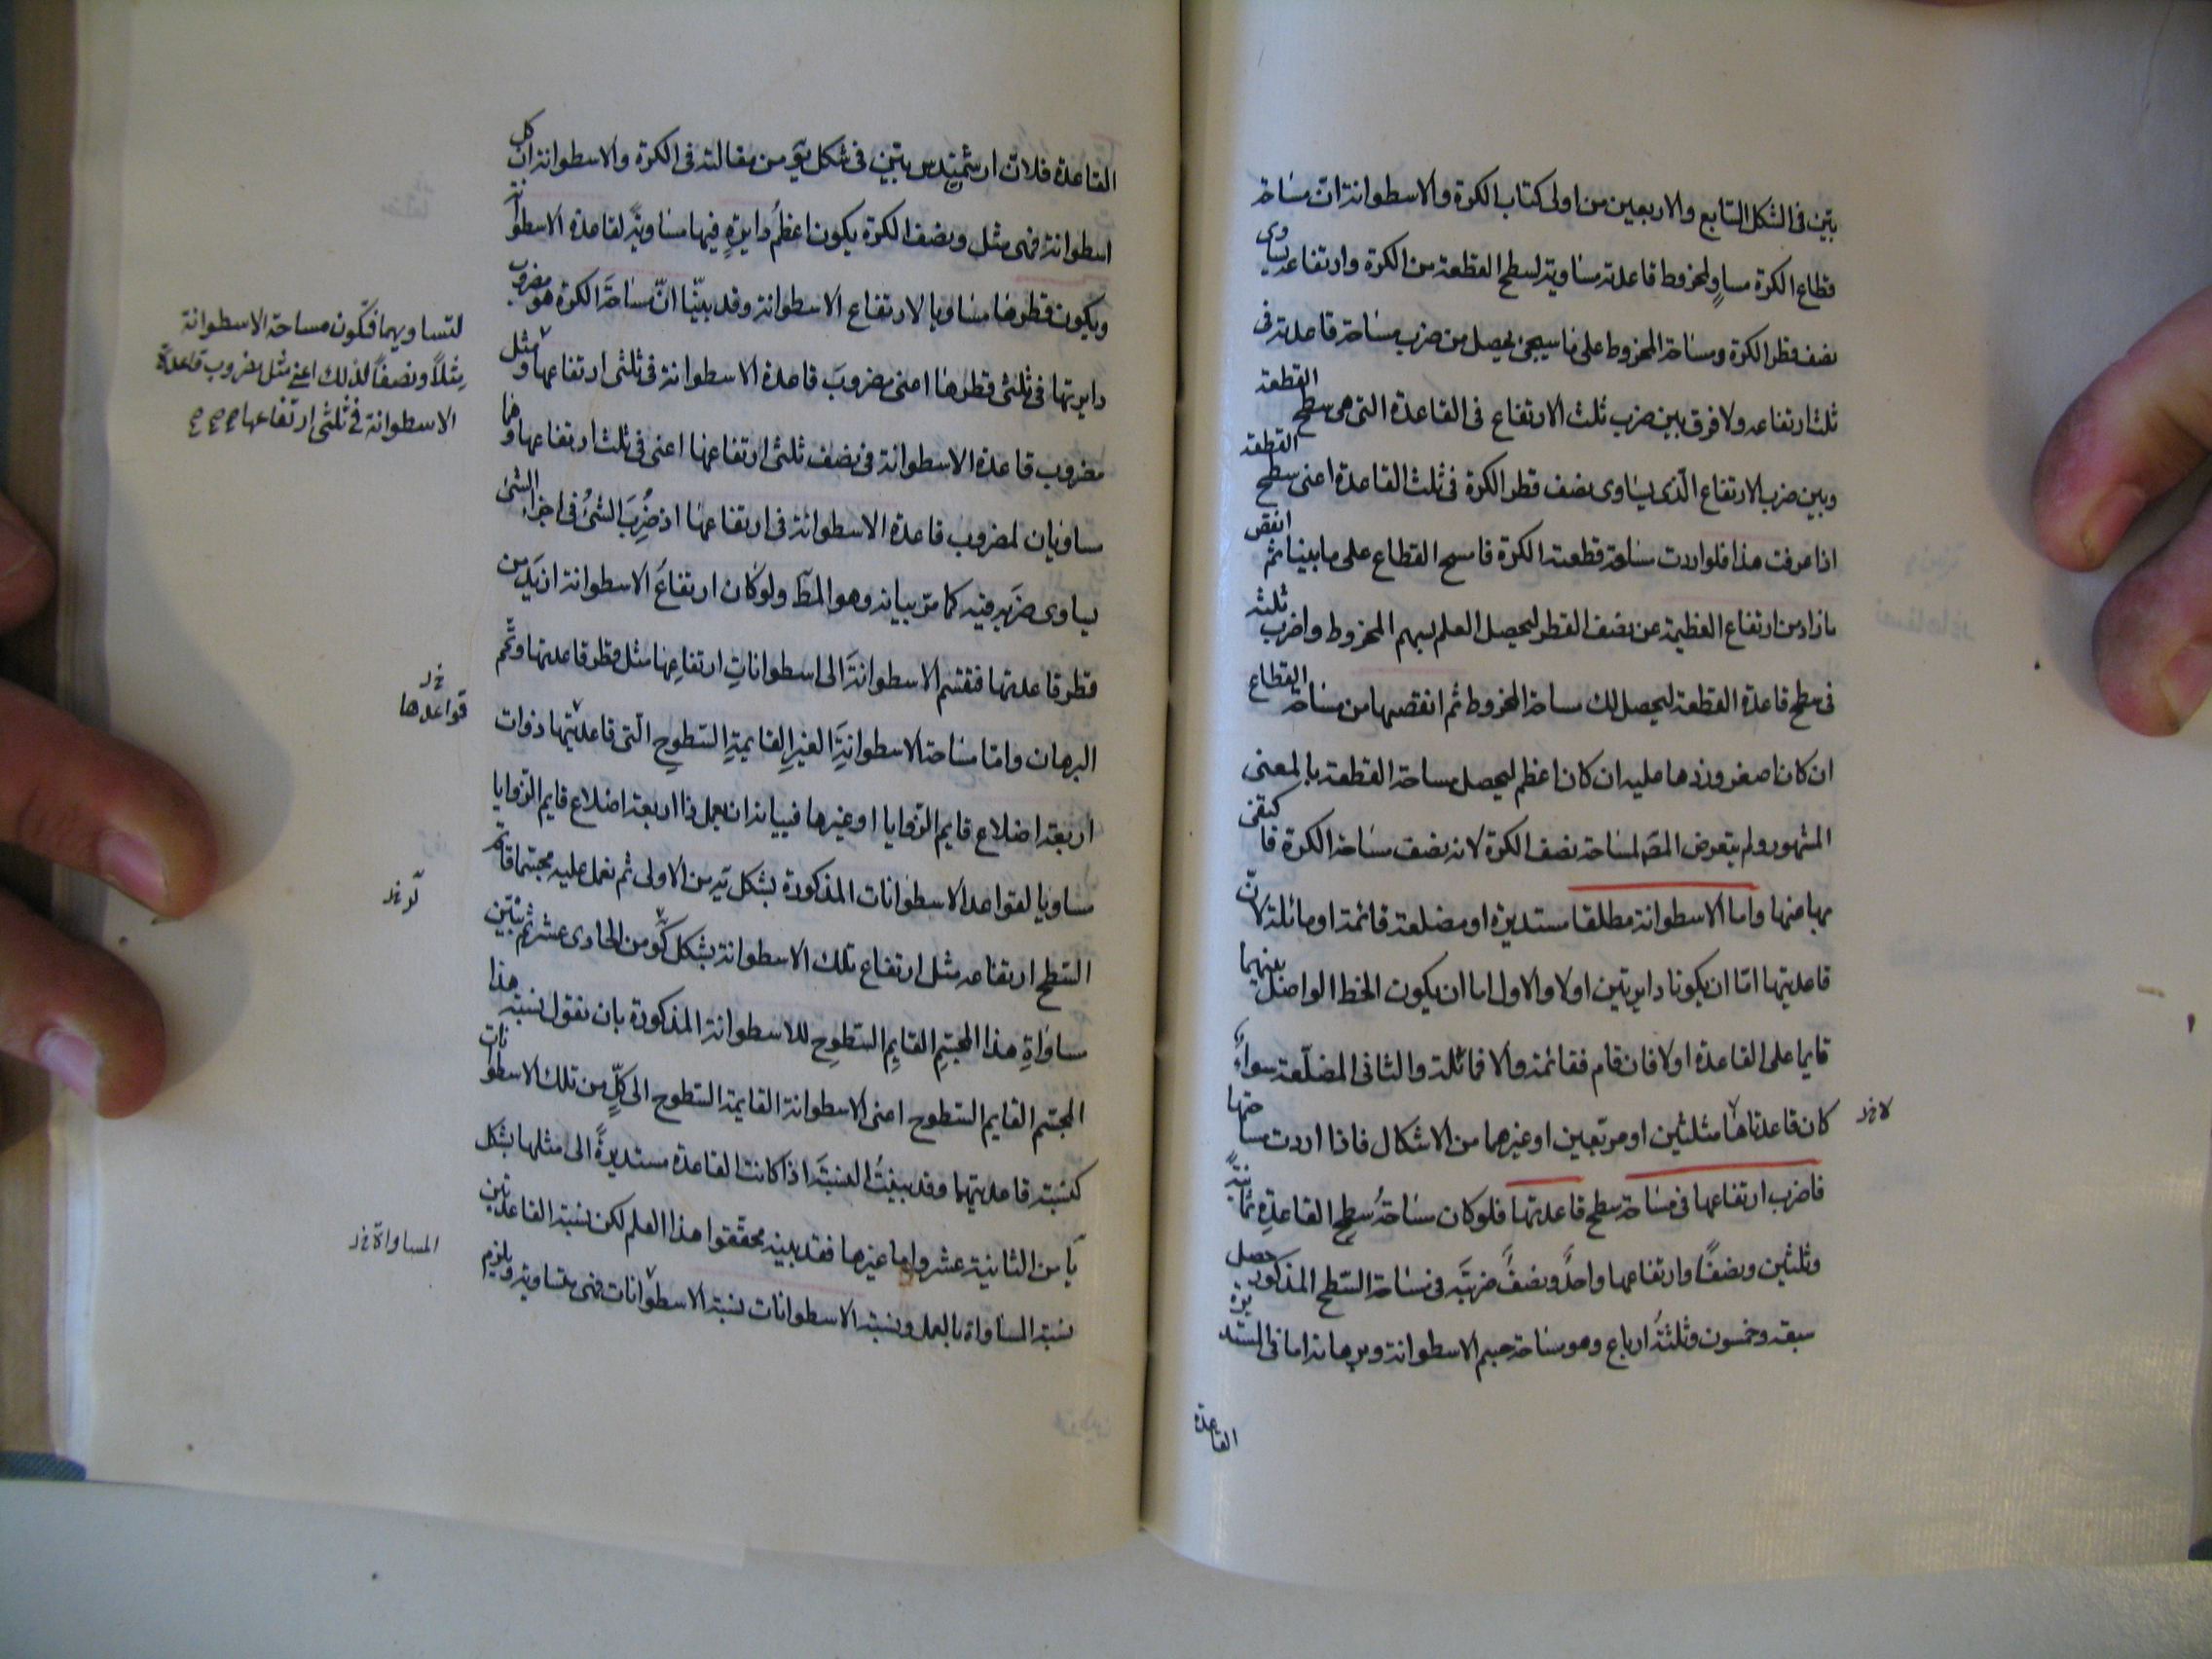 بيّن فى الشكل السابع والاربعين من اولى كتاب الكرة والاسطوانة ان مساحة
قطاع الكرة مساوٍ لمخروط قاعدته مساوية لسطح القطعة من الكرة وارتفاعه يساوى
نصف قطر الكرة ومساحة المخروط على ما سيجئ يحصل من ضرب مساحة قاعدته فى
ثلث ارتفاعه ولا فرق بين ضرب ثلث الارتفاع فى القاعدة التى هى سطح القطعة
وبين ضرب الارتفاع الّذى يساوى نصف قطر الكرة فى ثلث القاعدة اعنى سطح القطعة
اذا عرفت هذا فلو اردت مساحة قطعة الكرة فامسح القطاع على ما بينا ثم انقص
ما زاد من ارتفاع العظيمة عن نصف القطر ليحصل العلم بسهم المخروط واضرب ثلثه
فى سطح قاعدة القطعة ليحصل لك مساحة المخروط ثم انقصها من مساحة القطاع
ان كان اصغر وزدها عليه ان كان اعظم ليحصل مساحة القطعة بالمعنى
المشهور ولم يتعرض المصَ لمساحة نصف الكرة لانه نصف مساحة الكرة فاكتفى
بها عنها واما الاسطوانة مطلقا مستديرة او مضلعة قائمة او مائلة لانّ
قاعدتيها امّا ان يكونا دايرتين اولا والاول اما ان يكون الخط الواصل بينهما
قايما على القاعدة اولا فان قام فقائمة والا فمائلة والثانى المضلّعة سواء
كان قاعدتاها مثلثين او مربّعين او غيرهما من الاشكال فاذا اردت مساحتها
لا خ
فاضرب ارتفاعها فى مساحة سطح قاعدتها فلو كان مساحةُ سطحِ القاعدةِ ثمانيةً
وثلثين ونصفًا وارتفاعها واحدًا ونصفًا ضربتَه فى مساحة السّطح المذكور حصل
سبعة وخمسون وثلثةُ ارباع وهو مساحة جسم الاسطوانة وبرهانه اما فى المستديرة
القاعدة
القاعدة فلانّ ارشميدس بيّن فى شكل من مقالته فى الكرة والاسطوانة انّ كل
اسطوانة فهى مثل ونصف الكرة يكون اعظمُ دايرةٍ فيها مساويةً لقاعدة الاسطوانة
ويكون قطرها مساويا لارتفاع الاسطوانة وقد بيّنا انّ مساحة الكرة هو مضروب
دايرتها فى ثلثى قطرها اعنى مضروبَ قاعدة الاسطوانة فى ثلثى ارتفاعها ومثل
لتساويهما فيكون مساحة الاسطوانة
مِثلاً ونصفاً لذلك اعنى مثل مضروب قاعدة
الاسطوانة فى ثلثى ارتفاعها
مضروب قاعدة الاسطوانة فى نصف ثلثى ارتفاعها اعنى فى ثلث ارتفاعها وهما
مساويان لمضروب قاعدة الاسطوانة فى ارتفاعها اذ ضُرِبَ الشئُ فى اجزاء الشئ
يساوى ضربه فيه كما مرّ بيانه وهو المطَ ولو كان ارتفاعُ الاسطوانة ازيد من
قطر قاعدتها فنقسم الاسطوانةَ الى اسطواناتٍ ارتفاعها مثل قطر قاعدتها وتمّم
خ
قواعدها
البرهان وامّا مساحة الاسطوانةِ الغيرِ القايمةِ السّطوح الّتى قاعدتيها ذوات
اربعة اضلاع قايم الزّوايا او غيرها فبيانه ان نعمل ذا اربعة اضلاع قايم الزّوايا
مساويا لقواعد الاسطوانات المذكورة بشكل يَد من الاولى ثم نعمل عليه مجسّما قائم
السّطح ارتفاعه مثل ارتفاع تلك الاسطوانة بشكل من الحادى عشر ثم نبيّن
مساواةِ هذا المجسّمِ القايمِ السّطوح للاسطوانة المذكورة بان نقول نسبة هذا
المجسّم القايم السّطوح اعنى الاسطوانة القايمة السّطوح الى كلّ من تلك الاسطوانات
كنسبة قاعدتيهما وقد بيّنتُ النسبةَ اذا كانت القاعدة مستديرةً الى مثلها بشكل
يَا من الثانية عشر واما غيرها فقد بينه محقّقوا هذا العلم لكن نسبة القاعدتين
المساواة خ
نسبة المساواة بالعمل ونسبة الاسطوانات نسبة الاسطوانات فهى متساوية ويلزم